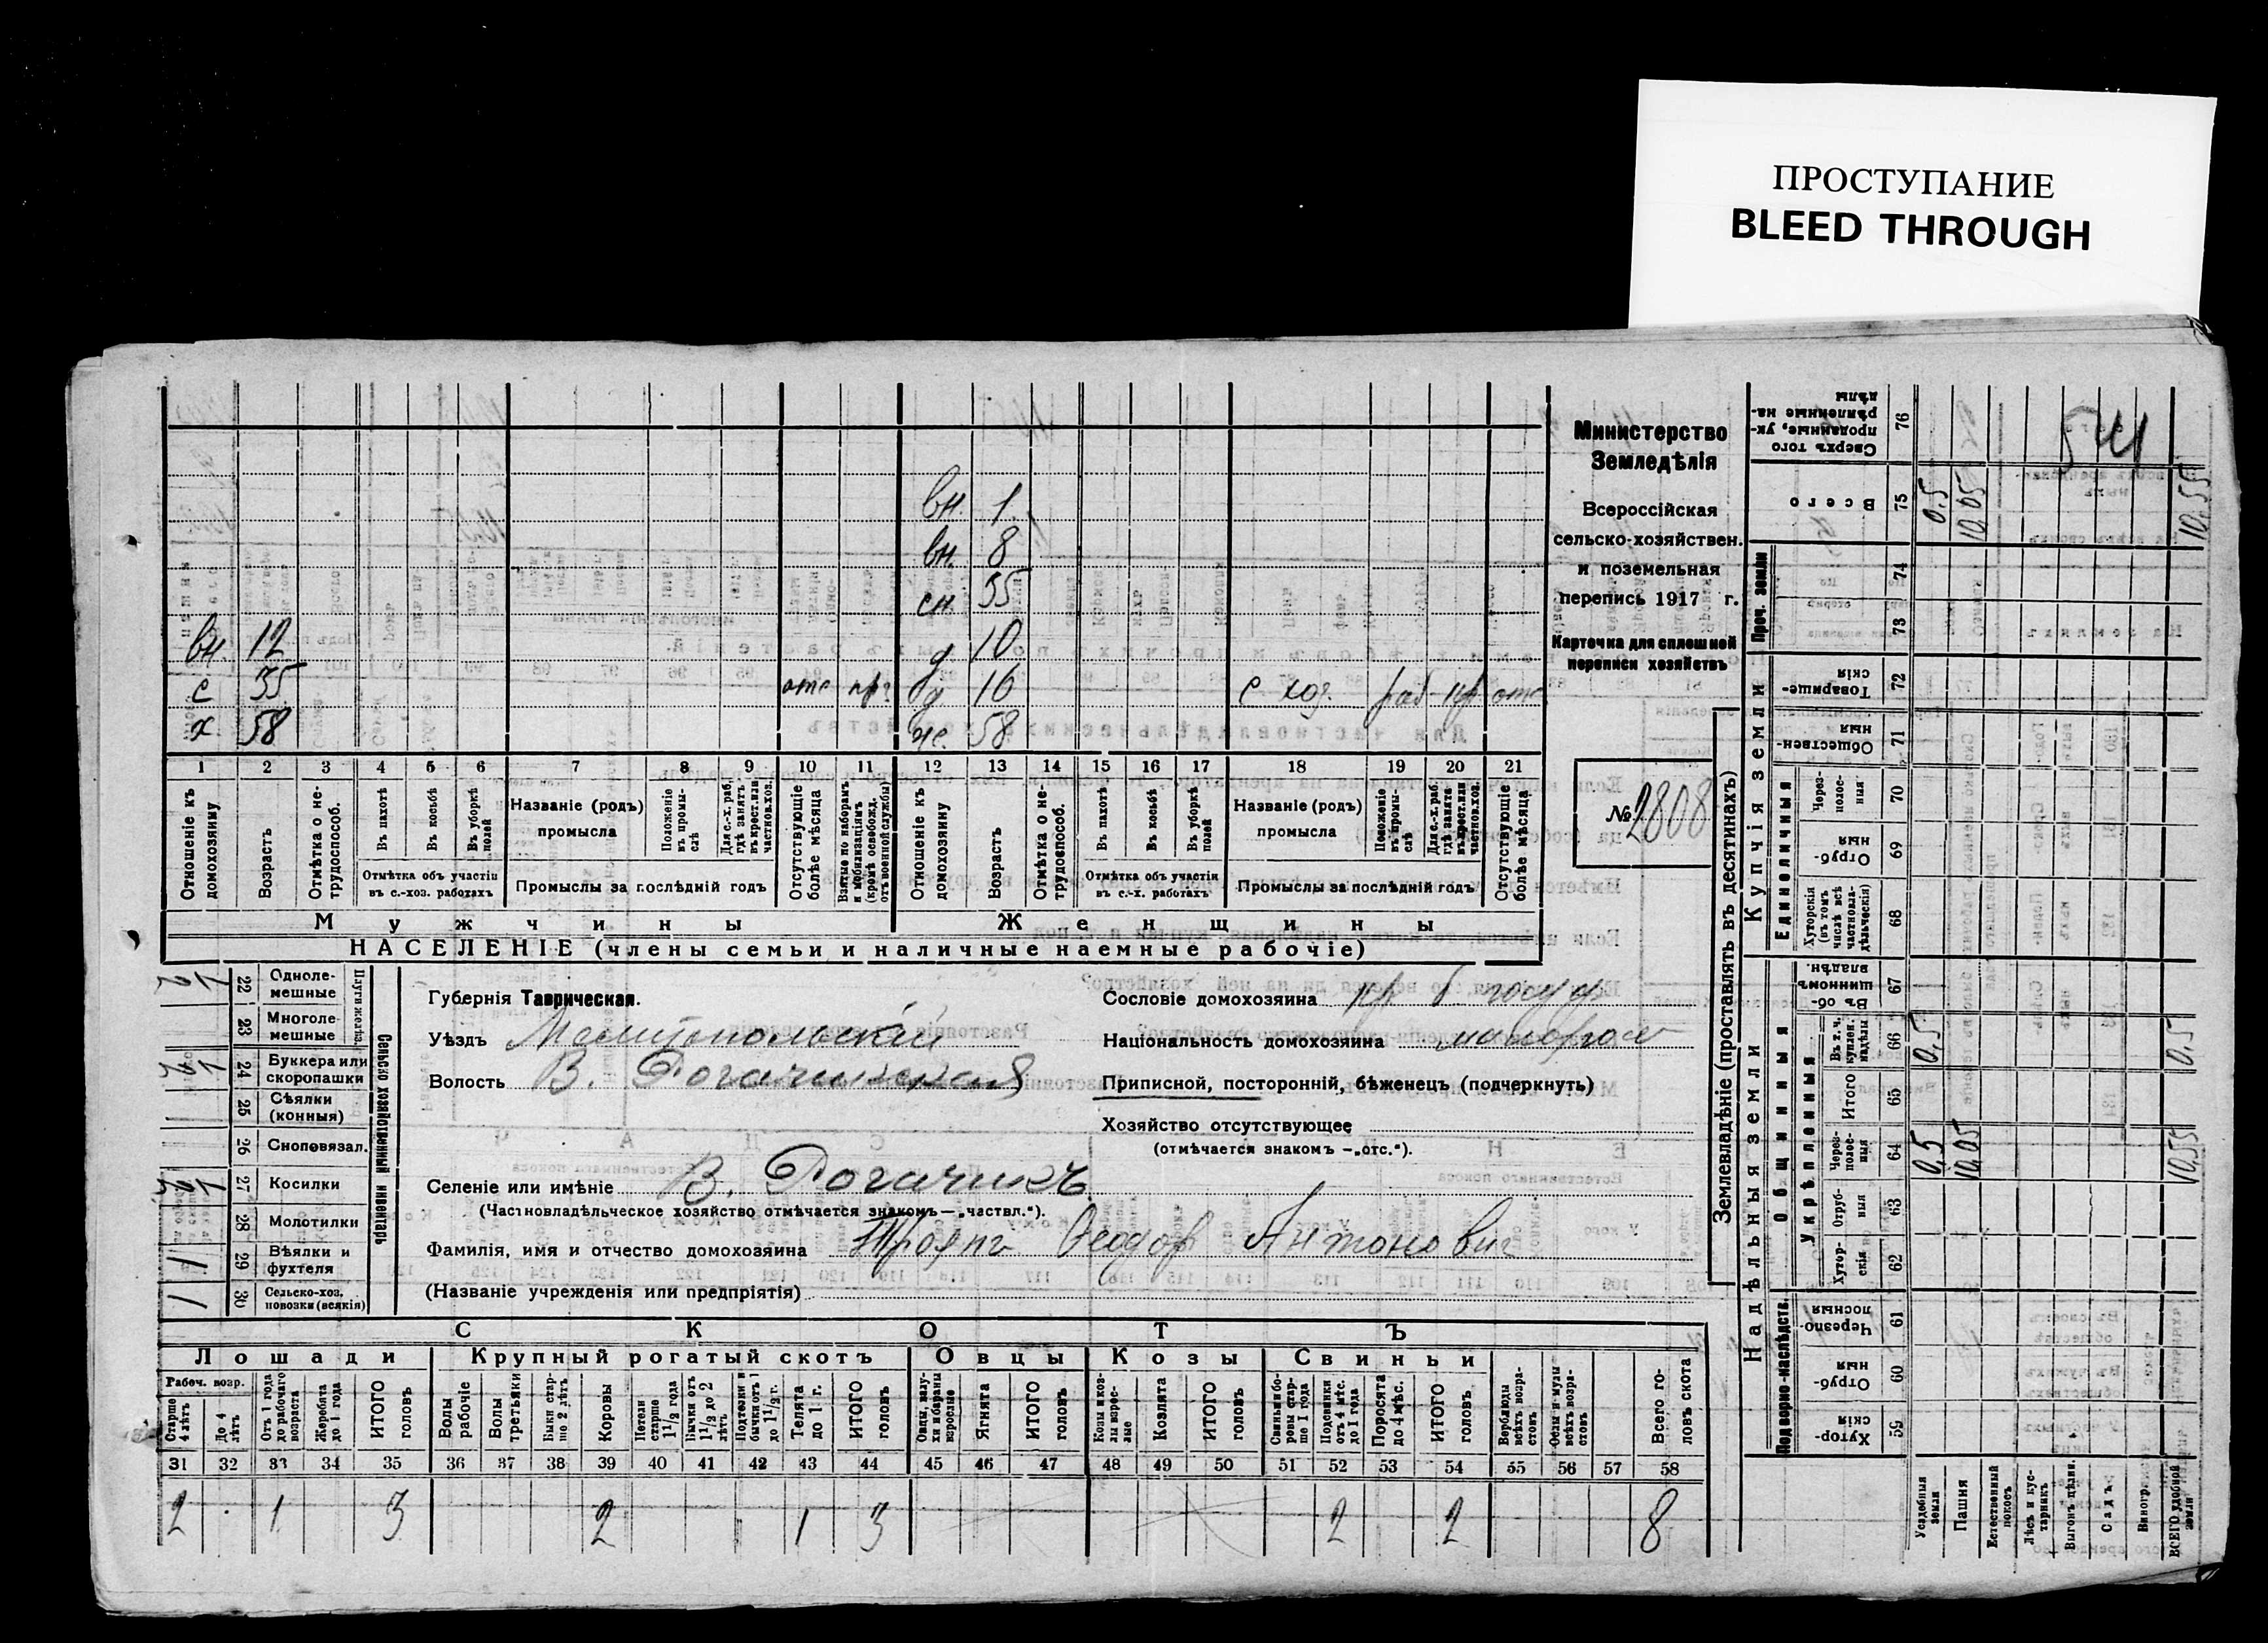 ПРОСТУПАНИЕ
BLEED THROUGH
Министерство
Земледѣлія
Всероссійская
сельско-хозяйствен.
и поземельная
перепись 1917 г.
Карточка для сплошной
переписи хозяйствъ
№ 2808
541
вн. 1
вн. 8
сн. 35
вн. 12 д 10
с 35 отс д 16 с хоз. раб отс
х 58 ж. 58
1 2 3 4 5 6 7 8 9 10 11 12 13 14 15 16 17 18 19 20 21
Отношеніе къ домохозяину
Возрастъ
Отмѣтка о не-трудоспособ.
Въ пахотѣ
Въ косьбѣ
Въ уборкѣ полей
Отмѣтка объ участіи въ с.-хоз. работахъ
Названіе (родъ) промысла
Положеніе въ промы-слѣ
Для с.-х. раб. гдѣ занятъ въ крест. или частнов. хоз.
Промыслы за послѣдній годъ
Отсутствующіе болѣе мѣсяца
Взятые по наборамъ и мобилизаціямъ (кромѣ освобожд. отъ военной службы)
Отношеніе къ домохозяину
Возрастъ
Отмѣтка о не-трудоспособ.
Въ пахотѣ
Въ косьбѣ
Въ уборкѣ полей
Отмѣтка объ участіи въ с.-х. работахъ
Названіе (родъ) промысла
Положеніе въ промы-слѣ
Для с.-х. раб. гдѣ занята въ крест. или частнов. хоз.
Промыслы за послѣдній годъ
Отсутствующіе болѣе мѣсяца
Мужчины Женщины
НАСЕЛЕНІЕ (члены семьи и наличные наемные рабочіе)
Сельско хозяйственный инвентарь
Плуги желѣз.
22 Одноле-мешные
23 Многоле-мешные
24 Буккера или скоропашки
25 Сѣялки (конныя)
26 Сноповязал.
27 Косилки
28 Молотилки
29 Вѣялки и фухтеля 1
30 Сельско-хоз. повозки (всякія) 1
Губернія Таврическая.
Уѣздъ Мелитопольскій
Волость В. Рогачикская
Селеніе или имѣніе В. Рогачикъ
(Частновладѣльческое хозяйство отмѣчается знакомъ—„частвл.“).
Фамилія, имя и отчество домохозяина Ѳеодор Антонович
(Названіе учрежденія или предпріятія)
Сословіе домохозяина кр б госуд
Національность домохозяина малоросс
Приписной, посторонній, бѣженецъ (подчеркнуть)
Хозяйство отсутствующее
(отмѣчается знакомъ —„отс.“).
СКОТЪ
Лошади Крупный рогатый скотъ Овцы Козы Свиньи
Рабоч. возр.
Старше 4 лѣтъ
До 4 лѣтъ
Отъ 1 года до рабочаго возраста
Жеребята до 1 года
ИТОГО головъ
Волы рабочіе
Волы третьяки
Быки стар-ше 2 лѣтъ
Коровы
Нетели старше 1½ года
Бычки отъ 1½ до 2 лѣтъ
Подтелки и бычки отъ 1 до 1½ г.
Телята до 1 г.
ИТОГО головъ
Овцы, валу-хи и бараны взрослые
Ягнята
ИТОГО головъ
Козы и коз-лы взрос-лые
Козлята
ИТОГО головъ
Свиньи и бо-ровы стар-ше 1 года
Подсвинки отъ 4 мѣс. до 1 года
Поросята до 4 мѣс.
ИТОГО головъ
Верблюды всѣхъ возра-стовъ
Ослы и мулы всѣхъ возра-стовъ
Всего го-ловъ скота
31 32 33 34 35 36 37 38 39 40 41 42 43 44 45 46 47 48 49 50 51 52 53 54 55 56 57 58
2 1 3 2 1 3 2 2 8
Землевладѣніе (проставлять въ десятинахъ)
Надѣльныя земли Купчія земли Проч. земли
Подворно-наслѣдств.
Общинныя
Укрѣпленныя
Единоличныя
59 Хутор-скія
60 Отруб-ныя
61 Черезпо-лосныя
62 Хутор-скія
63 Отруб-ныя
64 Через-полос-ныя
65 Итого
66 Въ т. ч. куплен. надѣлы
67 Въ об-щинномъ владѣн.
68 Хуторскія (въ томъ числѣ всѣ частновла-дѣльческія)
69 Отруб-ныя
70 Через-полос-ныя
71 Обществен-ныя
72 Товарище-скія
73
74
75 Всего
76 Сверхъ того проданные, ук-рѣпленные на-дѣлы
Усадебныя земли 0,5 0,5 0.5
Пашня 10.05 10.05
Естественный покосъ
Лѣсъ и кус-тарникъ
Выгонъ цѣлин.
Садъ
Виногр.
ВСЕГО удобной земли 10,55 0.5 10.55